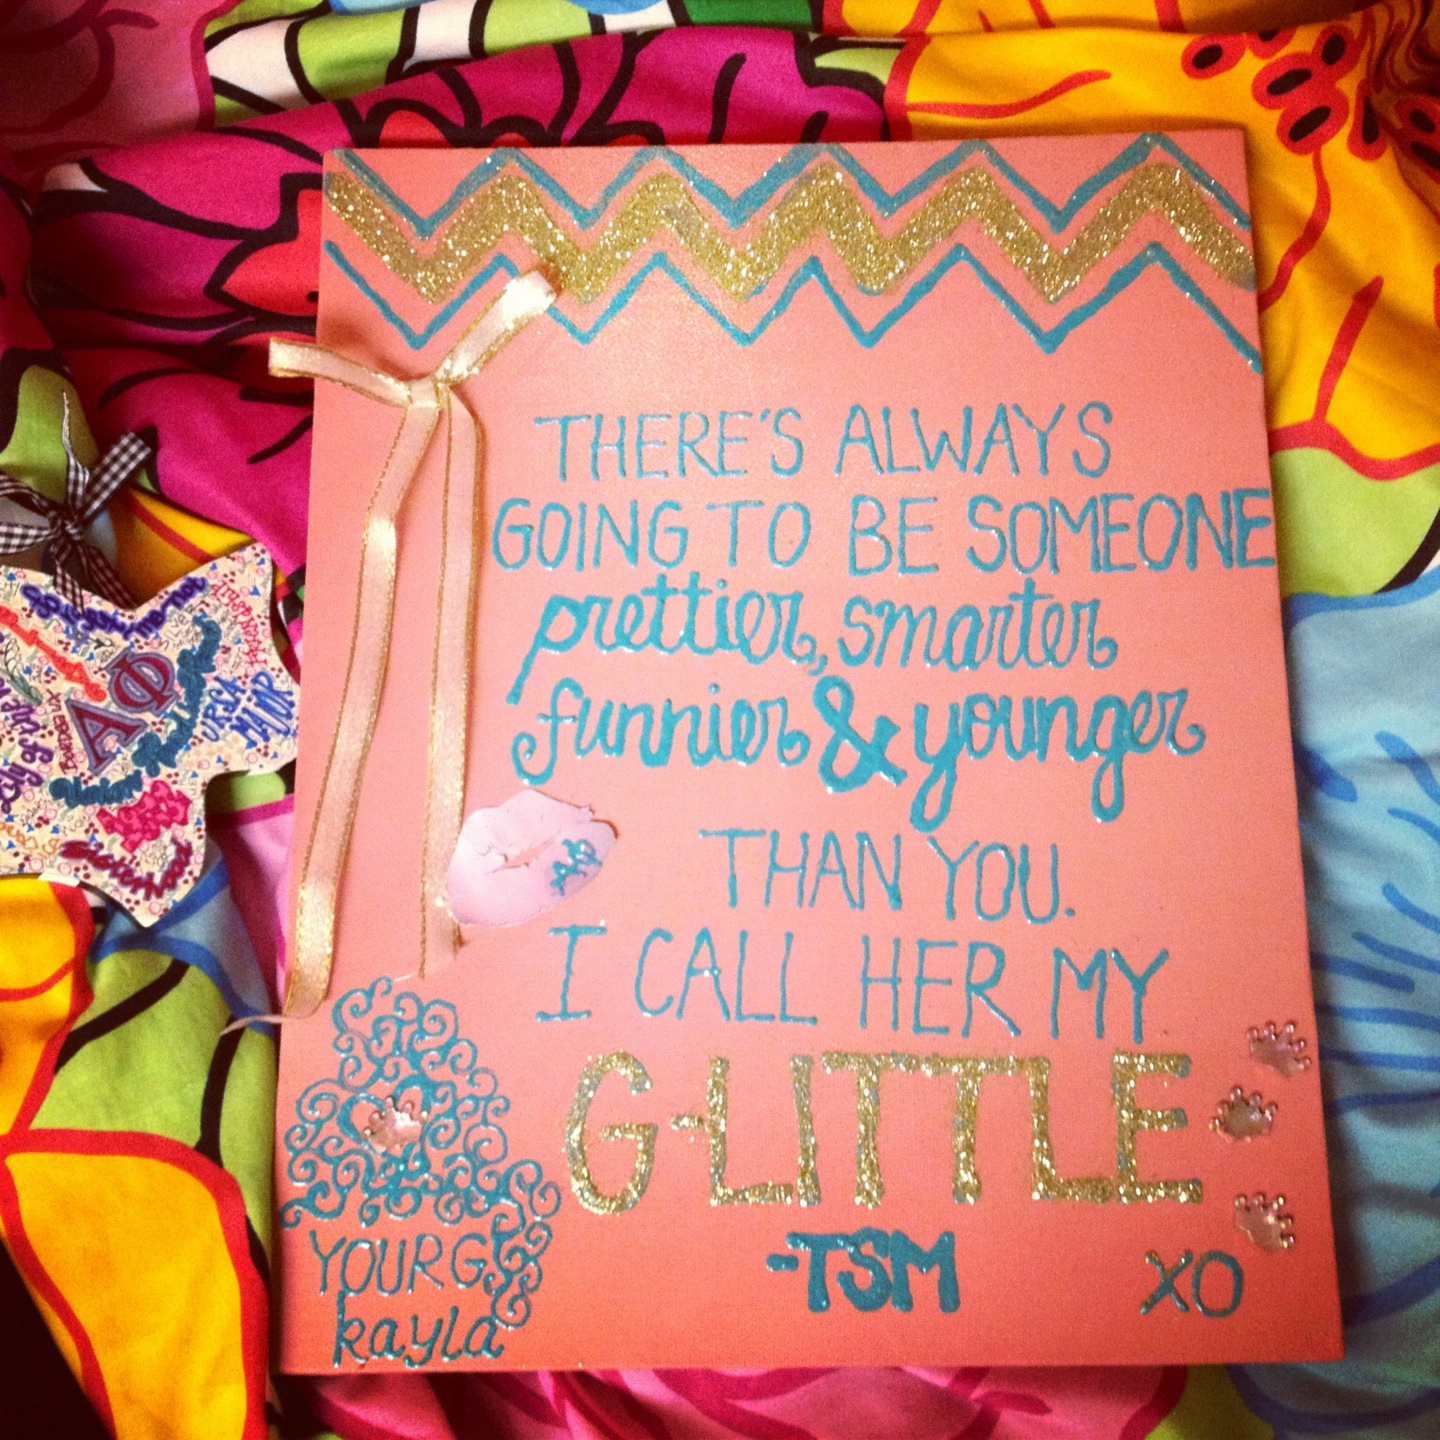 THERE'S ALWAYS
GOING TO BE SOMEONE
prettier, smarter
funnier & younger
THAN YOU.
I CALL HER MY
G-LITTLE
-TSM
XO
YOUR G
kayla
ΑΦ
URSA
MAJOR